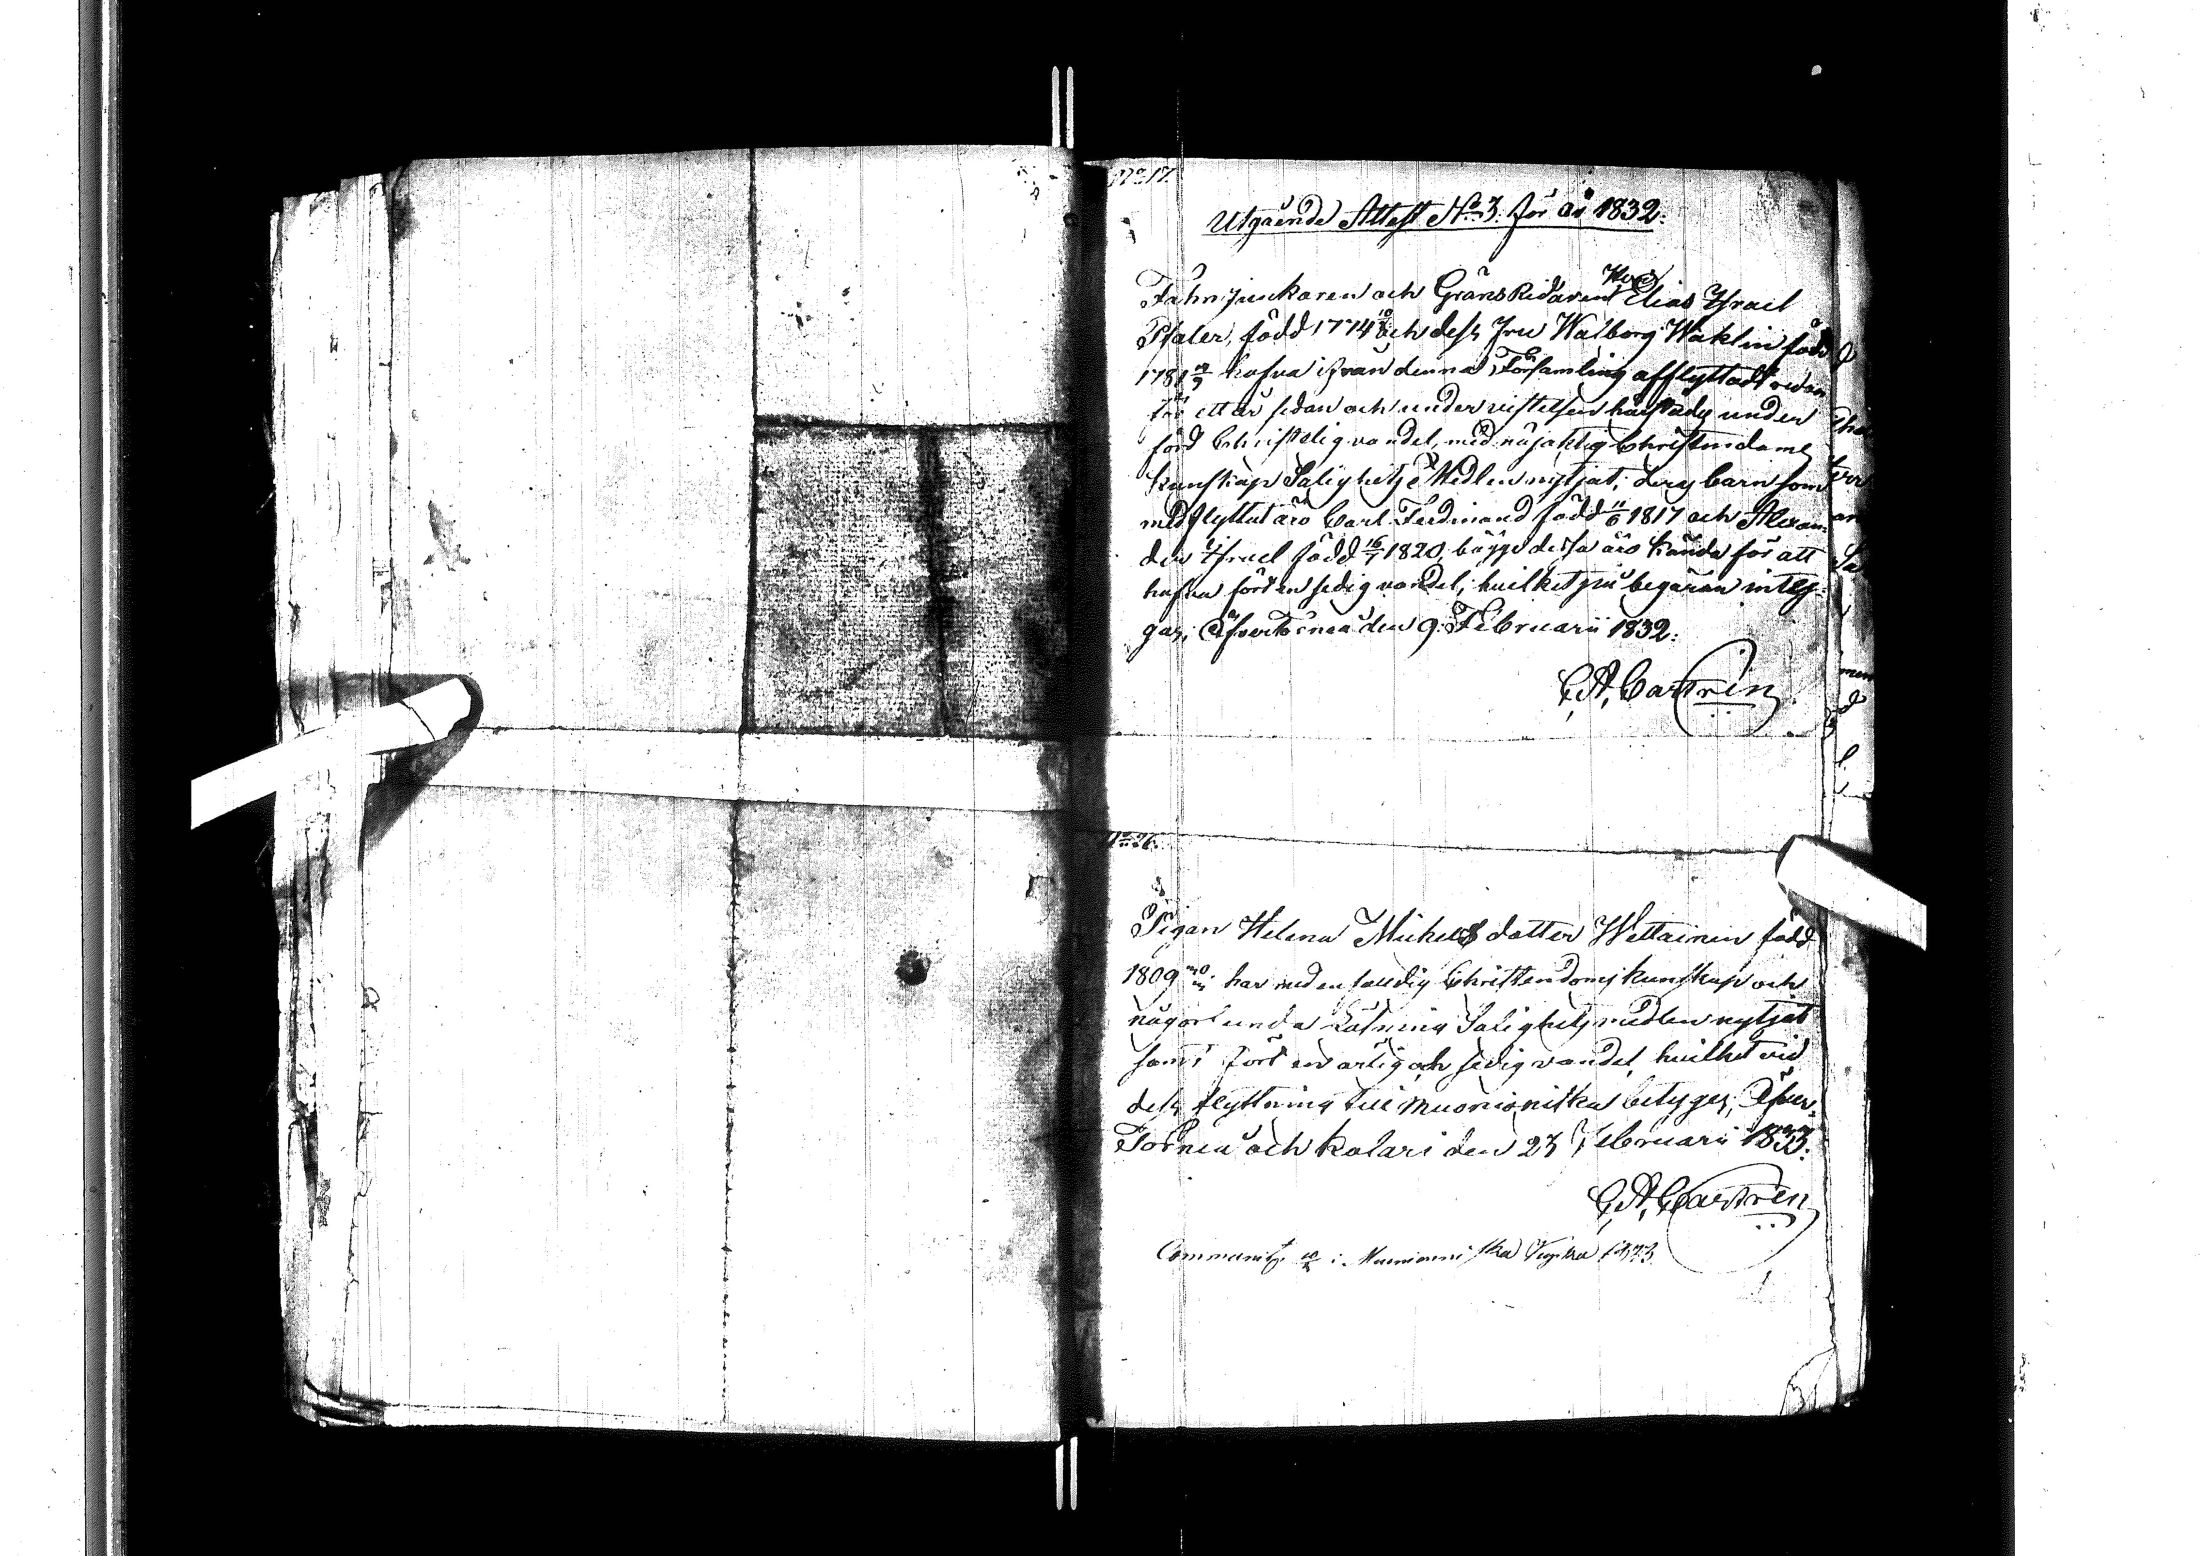 No 17.
Utgående Attest No 3. för år 1832.
Fahnjunkaren och Gränsridaren Herr Elias Israel
Pfaler, född 1774 10/8 och dess Fru Walborg Waklin född
1781 19/9 hafva ifrån denna Församling afflyttadt redan
för ett år sedan och under vistelsen härstädes under
förd Christelig vandel, med nöjaktig Christendoms
kunskap Salighets Medlen nytjat; deras barn som
medflyttat äro Carl Ferdinand född 11/6 1817 och Alexan-
der Israel född 16/7 1820, bägge dessa äro kända för att
hafva fört en sedig vandel; hvilket på begäran intyg-
gas; Öfvertorneå den 9. Februarii 1832.
C. A. Castrén
No 26.
Pigan Helena Michelsdotter Wettainen född
1809 har med enfaldig Christendoms kunskap och
någorlunda Läsning Salighets medlen nytjat
samt fört en ärlig och sedig vandel, hvilket vid
dess flyttning till Muonioniska betyges; Öfver-
Torneå och Kolari den 23 Februarii 1833.
C. A. Castrén
i Muonioniska Kyrka 1833